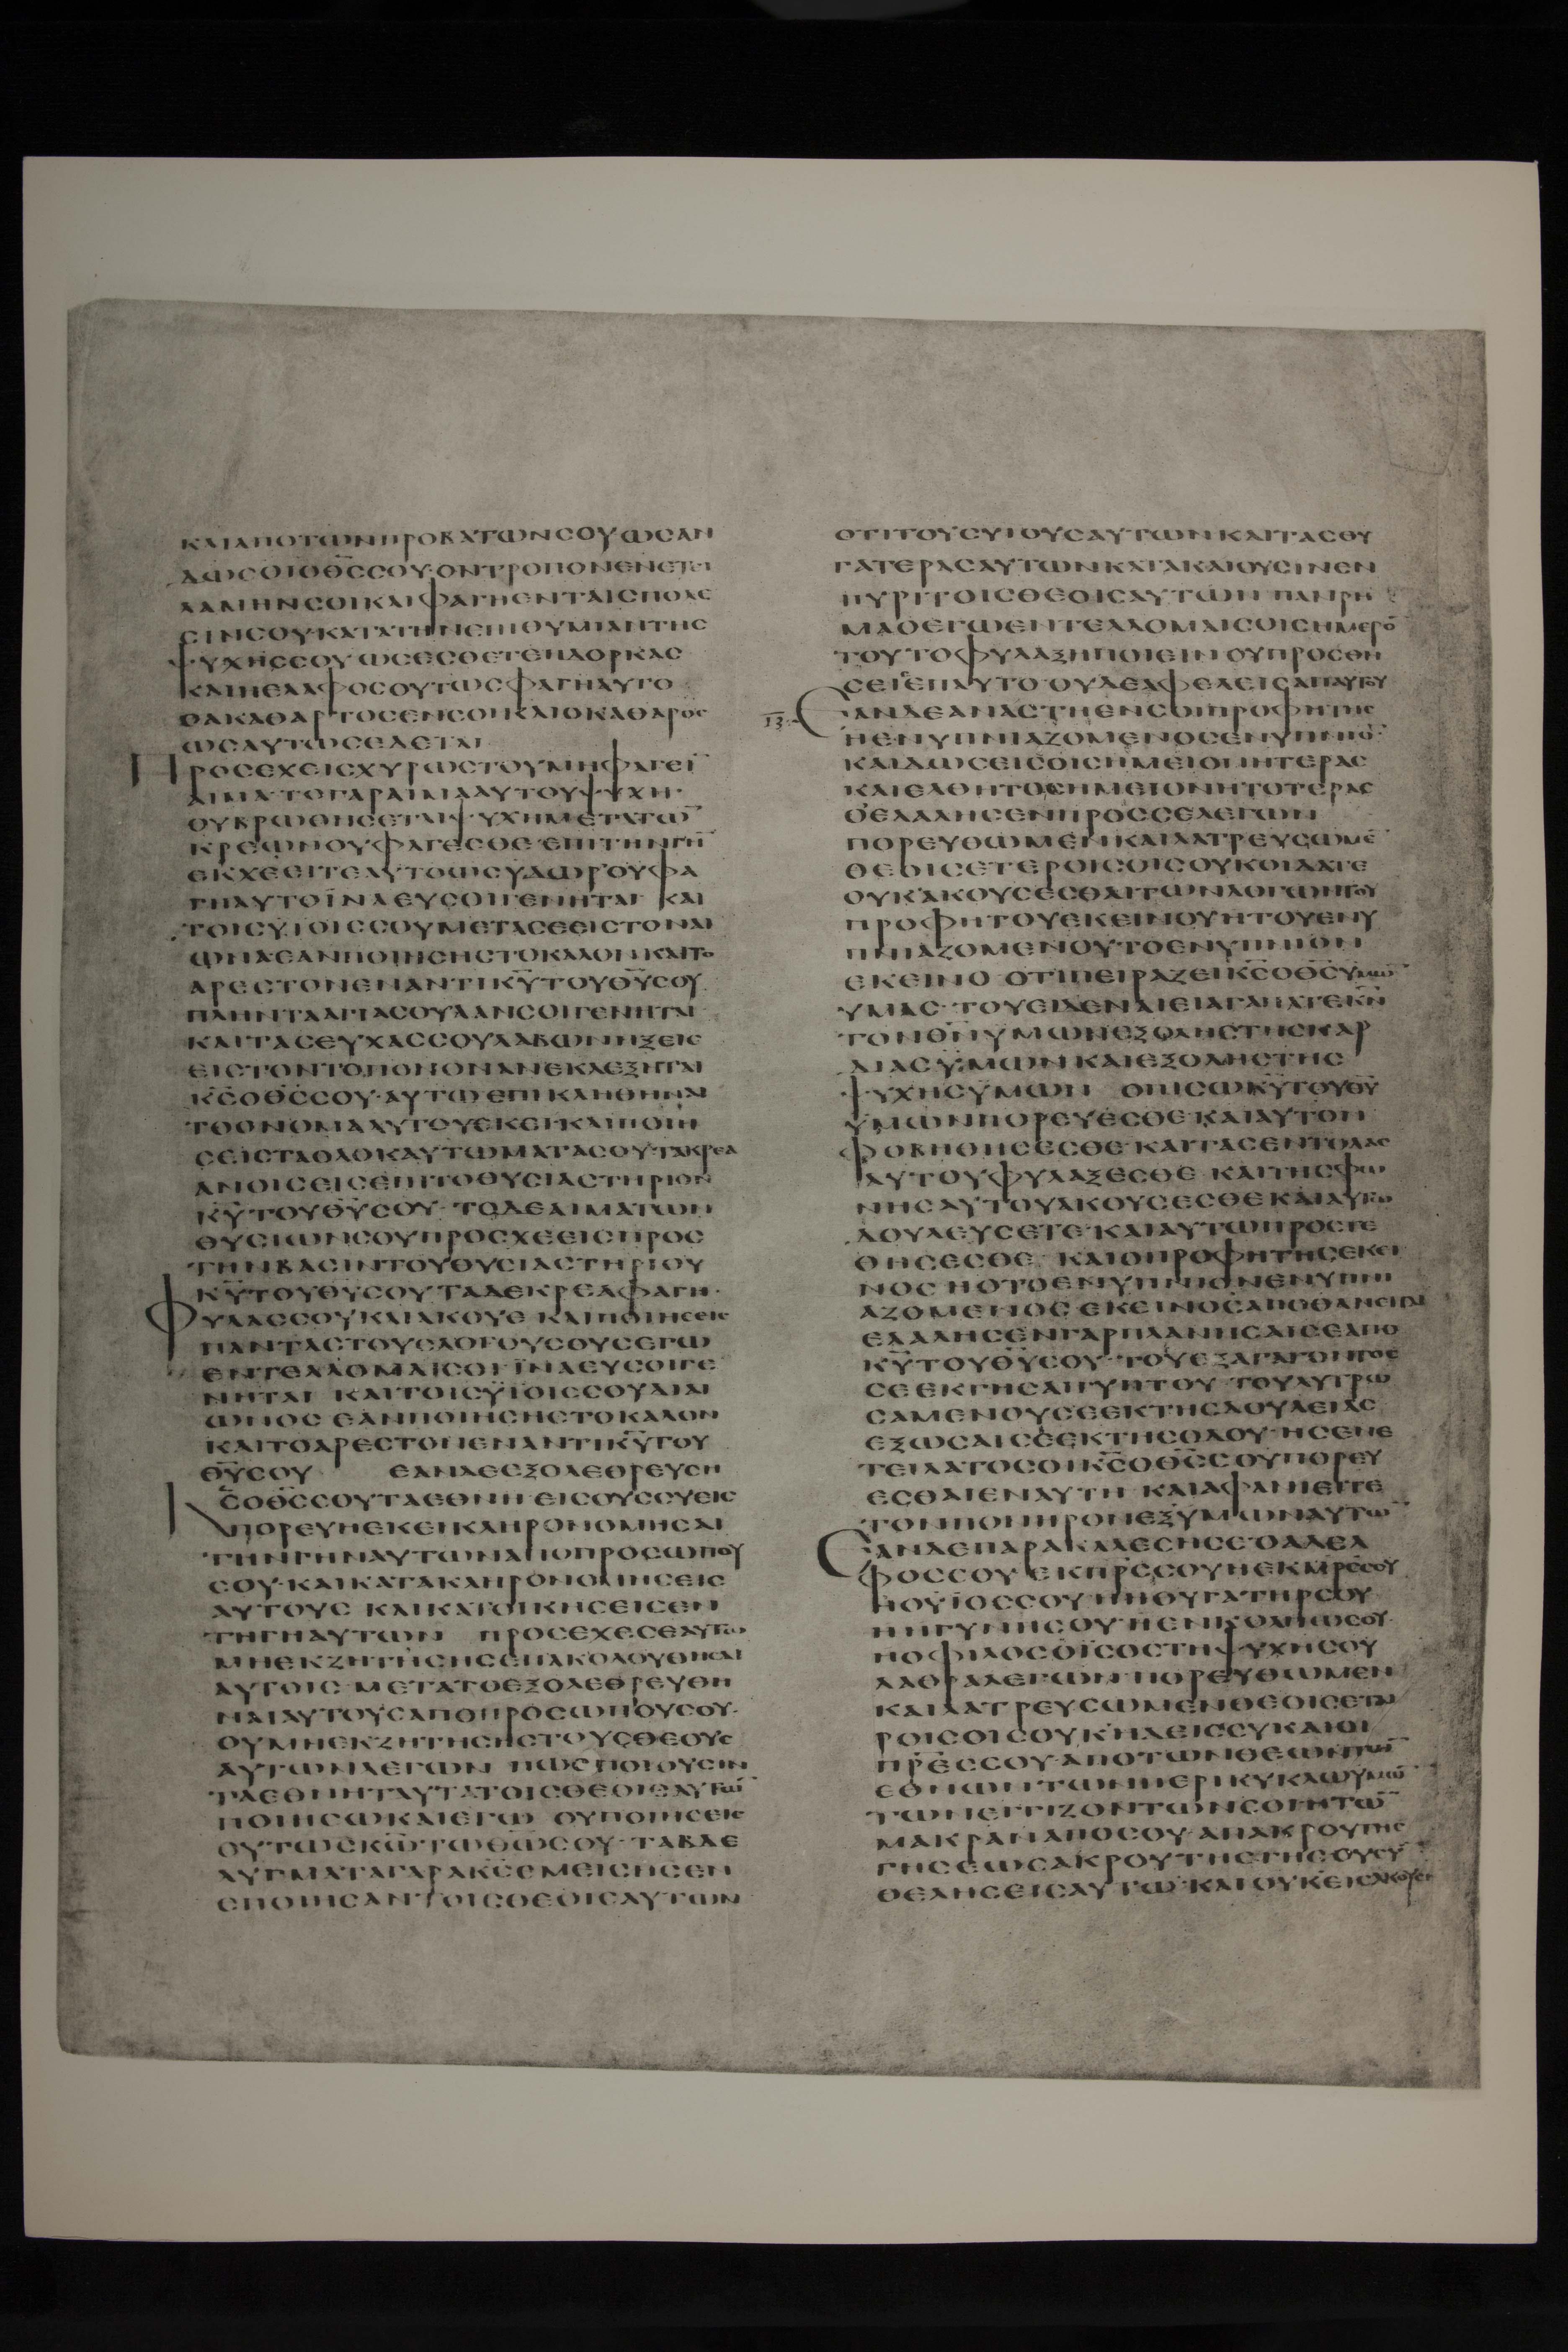 ΚΑΙΑΠΟΤΩΝΠΡΟΒΑΤΩΝΣΟΥΩΣΑΝ
ΔΩΣΟΙΟΘ̅Σ̅ΣΟΥ·ΟΝΤΡΟΠΟΝΕΝΕΤΕΙ
ΛΑΜΗΝΣΟΙΚΑΙΦΑΓΗΕΝΤΑΙΣΠΟΛΕ
ΣΙΝΣΟΥΚΑΤΑΤΗΝΕΠΙΘΥΜΙΑΝΤΗΣ
ΨΥΧΗΣΣΟΥΩΣΕΣΘΕΤΕΗΔΟΡΚΑΣ
ΚΑΙΗΕΛΑΦΟΣΟΥΤΩΣΦΑΓΗΑΥΤΟ
ΟΑΚΑΘΑΡΤΟΣΕΝΣΟΙΚΑΙΟΚΑΘΑΡΟΣ
ΩΣΑΥΤΩΣΕΔΕΤΑΙ
ΠΡΟΣΕΧΕΙΣΧΥΡΩΣΤΟΥΜΗΦΑΓΕΙ̅
ΑΙΜΑ·ΤΟΓΑΡΑΙΜΑΑΥΤΟΥΨΥΧΗ·
ΟΥΒΡΩΘΗΣΕΤΑΙΨΥΧΗΜΕΤΑΤΩ̅
ΚΡΕΩΝΟΥΦΑΓΕΣΘΕ·ΕΠΙΤΗΝΓΗ̅
ΕΚΧΕΕΙΤΕΑΥΤΟΩΣΥΔΩΡ·ΟΥΦΑ
ΓΗΑΥΤΟΪΝΑΕΥΣΟΙΓΕΝΗΤΑΙ ΚΑΙ
ΤΟΙΣΥΙΟΙΣΣΟΥΜΕΤΑΣΕΕΙΣΤΟΝΑΙ
ΩΝΑΕΑΝΠΟΙΗΣΗΣΤΟΚΑΛΟΝΚΑΙΤΟ
ΑΡΕΣΤΟΝΕΝΑΝΤΙΚ̅Υ̅ΤΟΥΘ̅Υ̅ΣΟΥ
ΠΛΗΝΤΑΑΓΙΑΣΟΥΑΑΝΣΟΙΓΕΝΗΤΑΙ
ΚΑΙΤΑΣΕΥΧΑΣΣΟΥΛΑΒΩΝΗΞΕΙΣ
ΕΙΣΤΟΝΤΟΠΟΝΟΝΑΝΕΚΛΕΞΗΤΑΙ
Κ̅Σ̅ΟΘ̅Σ̅ΣΟΥ·ΑΥΤΩΕΠΙΚΛΗΘΗΝΑΙ
ΤΟΟΝΟΜΑΑΥΤΟΥΕΚΕΙ·ΚΑΙΠΟΙΗ
ΣΕΙΣΤΑΟΛΟΚΑΥΤΩΜΑΤΑΣΟΥ·ΤΑΚΡΕΑ
ΑΝΟΙΣΕΙΣΕΠΙΤΟΘΥΣΙΑΣΤΗΡΙΟΝ
Κ̅Υ̅ΤΟΥΘ̅Υ̅ΣΟΥ·ΤΟΔΕΑΙΜΑΤΩΝ
ΘΥΣΙΩΝΣΟΥΠΡΟΣΧΕΕΙΣΠΡΟΣ
ΤΗΝΒΑΣΙΝΤΟΥΘΥΣΙΑΣΤΗΡΙΟΥ
Κ̅Υ̅ΤΟΥΘ̅Υ̅ΣΟΥ·ΤΑΔΕΚΡΕΑΦΑΓΗ·
ΦΥΛΑΣΣΟΥΚΑΙΑΚΟΥΕ·ΚΑΙΠΟΙΗΣΕΙΣ
ΠΑΝΤΑΣΤΟΥΣΛΟΓΟΥΣΟΥΣΕΓΩ
ΕΝΤΕΛΛΟΜΑΙΣΟΙ·ΪΝΑΕΥΣΟΙΓΕ
ΝΗΤΑΙ ΚΑΙΤΟΙΣΥΪΟΙΣΣΟΥΔΙΑΙ
ΩΝΟΣ ΕΑΝΠΟΙΗΣΗΣΤΟΚΑΛΟΝ
ΚΑΙΤΟΑΡΕΣΤΟΝΕΝΑΝΤΙΚ̅Υ̅ΤΟΥ
Θ̅Υ̅ΣΟΥ ΕΑΝΔΕΕΞΟΛΕΘΡΕΥΣΗ
ΚΣ̅ΟΘ̅Σ̅ΣΟΥΤΑΕΘΝΗ·ΕΙΣΟΥΣΣΥΕΙΣ
ΠΟΡΕΥΗΕΚΕΙΚΛΗΡΟΝΟΜΗΣΑΙ
ΤΗΝΓΗΝΑΥΤΩΝΑΠΟΠΡΟΣΩΠΟΥ
ΣΟΥ·ΚΑΙΚΑΤΑΚΛΗΡΟΝΟΜΗΣΕΙΣ
ΑΥΤΟΥΣ ΚΑΙΚΑΤΟΙΚΗΣΕΙΣΕΝ
ΤΗΓΗΑΥΤΩΝ ΠΡΟΣΕΧΕΣΕΑΥΤΩ
ΜΗΕΚΖΗΤΗΣΗΣΕΠΑΚΟΛΟΥΘΗΣΑΙ
ΑΥΤΟΙΣ·ΜΕΤΑΤΟΕΞΟΛΕΘΡΕΥΘΗ
ΝΑΙΑΥΤΟΥΣΑΠΟΠΡΟΣΩΠΟΥΣΟΥ·
ΟΥΜΗΕΚΖΗΤΗΣΗΣΤΟΥΣΘΕΟΥΣ
ΑΥΤΩΝΛΕΓΩΝ ΠΩΣΠΟΙΟΥΣΙΝ
ΤΑΕΘΝΗΤΑΥΤΑΤΟΙΣΘΕΟΙΣΑΥΤΩ̅
ΠΟΙΗΣΩΚΑΙΕΓΩ ΟΥΠΟΙΗΣΕΙΣ
ΟΥΤΩΣΚ̅Ω̅ΤΩΘ̅Ω̅ΣΟΥ·ΤΑΒΔΕ
ΛΥΓΜΑΤΑΓΑΡΑΚ̅Σ̅ΕΜΕΙΣΗΣΕΝ
ΕΠΟΙΗΣΑΝΤΟΙΣΘΕΟΙΣΑΥΤΩΝ
ΟΤΙΤΟΥΣΥΙΟΥΣΑΥΤΩΝΚΑΙΤΑΣΘΥ
ΓΑΤΕΡΑΣΑΥΤΩΝΚΑΤΑΚΑΙΟΥΣΙΝΕΝ
ΠΥΡΙΤΟΙΣΘΕΟΙΣΑΥΤΩΝ ΠΑΝΡΗ
ΜΑΟΕΓΩΕΝΤΕΛΛΟΜΑΙΣΟΙΣΗΜΕΡΟ̅
ΤΟΥΤΟΦΥΛΑΞΗΠΟΙΕΙΝ ΟΥΠΡΟΣΘΗ
ΣΕΙΣΕΠΑΥΤΟ·ΟΥΔΕΑΦΕΛΕΙΣΑΠΑΥΤΟΥ
13. ΕΑΝΔΕΑΝΑΣΤΗΕΝΣΟΙΠΡΟΦΗΤΗΣ
ΗΕΝΥΠΝΙΑΖΟΜΕΝΟΣΕΝΥΠΝΙΟ̅·
ΚΑΙΔΩΣΕΙΣΟΙΣΗΜΕΙΟΝΗΤΕΡΑΣ
ΚΑΙΕΛΘΗΤΟΣΗΜΕΙΟΝΗΤΟΤΕΡΑΣ
ΟΕΛΑΛΗΣΕΝΠΡΟΣΣΕΛΕΓΩΝ
ΠΟΡΕΥΘΩΜΕΝΚΑΙΛΑΤΡΕΥΣΩΜΕ̅
ΘΕΟΙΣΕΤΕΡΟΙΣΟΙΣΟΥΚΟΙΔΑΤΕ
ΟΥΚΑΚΟΥΣΕΣΘΑΙΤΩΝΛΟΓΩΝΤΟΥ
ΠΡΟΦΗΤΟΥΕΚΕΙΝΟΥΗΤΟΥΕΝΥ
ΠΝΙΑΖΟΜΕΝΟΥ·ΤΟΕΝΥΠΝΙΟΝ
ΕΚΕΙΝΟ ΟΤΙΠΕΙΡΑΖΕΙΚ̅Σ̅ΟΘ̅Σ̅ΥΜΩ̅
ΥΜΑΣ·ΤΟΥΕΙΔΕΝΑΙΕΙΑΓΑΠΑΤΕΚ̅Ν̅
ΤΟΝΘ̅Ν̅ΥΜΩΝΕΞΟΛΗΣΤΗΣΚΑΡ
ΔΙΑΣΥΜΩΝΚΑΙΕΞΟΛΗΣΤΗΣ
ΨΥΧΗΣΥΜΩΝ ΟΠΙΣΩΚ̅Υ̅ΤΟΥΘ̅Υ̅
ΥΜΩΝΠΟΡΕΥΕΣΘΕ·ΚΑΙΑΥΤΟΝ
ΦΟΒΗΘΗΣΕΣΘΕ·ΚΑΙΤΑΣΕΝΤΟΛΑΣ
ΑΥΤΟΥΦΥΛΑΞΕΣΘΕ·ΚΑΙΤΗΣΦΩ
ΝΗΣΑΥΤΟΥΑΚΟΥΣΕΣΘΕΚΑΙΑΥΤΩ
ΔΟΥΛΕΥΣΕΤΕ·ΚΑΙΑΥΤΩΠΡΟΣΤΕ
ΘΗΣΕΣΘΕ ΚΑΙΟΠΡΟΦΗΤΗΣΕΚΕΙ
ΝΟΣ ΗΟΤΟΕΝΥΠΝΙΟΝΕΝΥΠΝΙ
ΑΖΟΜΕΝΟΣΕΚΕΙΝΟΣΑΠΟΘΑΝΕΙΤΑΙ
ΕΛΑΛΗΣΕΝΓΑΡΠΛΑΝΗΣΑΙΣΕΑΠΟ
Κ̅Υ̅ΤΟΥΘ̅Υ̅ΣΟΥ·ΤΟΥΕΞΑΓΑΓΟΝΤΟΣ
ΣΕΕΚΓΗΣΑΙΓΥΠΤΟΥ·ΤΟΥΛΥΤΡΩ
ΣΑΜΕΝΟΥΣΕΕΚΤΗΣΔΟΥΛΕΙΑΣ
ΕΞΩΣΑΙΣΕΕΚΤΗΣΟΔΟΥ·ΗΣΕΝΕ
ΤΕΙΛΑΤΟΣΟΙΚ̅Σ̅ΟΘ̅Σ̅ΣΟΥΠΟΡΕΥ
ΕΣΘΑΙΕΝΑΥΤΗ ΚΑΙΑΦΑΝΙΕΙΤΕ
ΤΟΝΠΟΝΗΡΟΝΕΞΥΜΩΝΑΥΤΩ̅
ΕΑΝΔΕΠΑΡΑΚΑΛΕΣΗΣΕ·ΟΑΔΕΛ
ΦΟΣΣΟΥ·ΕΚΠ̅Ρ̅Σ̅ΣΟΥΗΕΚΜ̅Ρ̅Σ̅ΣΟΥ
ΗΟΥΪΟΣΣΟΥ·ΗΗΘΥΓΑΤΗΡΣΟΥ
ΗΗΓΥΝΗΣΟΥ·ΗΕΝΚΟΛΠΩΣΟΥ·
ΗΟΦΙΛΟΣΟΪΣΟΣΤΗΨΥΧΗΣΟΥ
ΛΑΘΡΑΛΕΓΩΝ·ΠΟΡΕΥΘΩΜΕΝ
ΚΑΙΛΑΤΡΕΥΣΩΜΕΝΘΕΟΙΣΕΤΕ
ΡΟΙΣΟΙΣΟΥΚΗΔΕΙΣΣΥΚΑΙΟΙ
Π̅Ρ̅Ε̅Σ̅ΣΟΥ·ΑΠΟΤΩΝΘΕΩΝΤΩ̅
ΕΘΝΩΝΤΩΝΠΕΡΙΚΥΚΛΩΥΜΩ̅
ΤΩΝΕΓΓΙΖΟΝΤΩΝΣΟΙ·ΗΤΩ̅
ΜΑΚΡΑΝΑΠΟΣΟΥ·ΑΠΑΚΡΟΥΤΗΣ
ΓΗΣΕΩΣΑΚΡΟΥΤΗΣΓΗΣ·ΟΥΣΥ
ΘΕΛΗΣΕΙΣΑΥΤΩ·ΚΑΙΟΥΚΕΙΣΑΚΟΥΣΗ